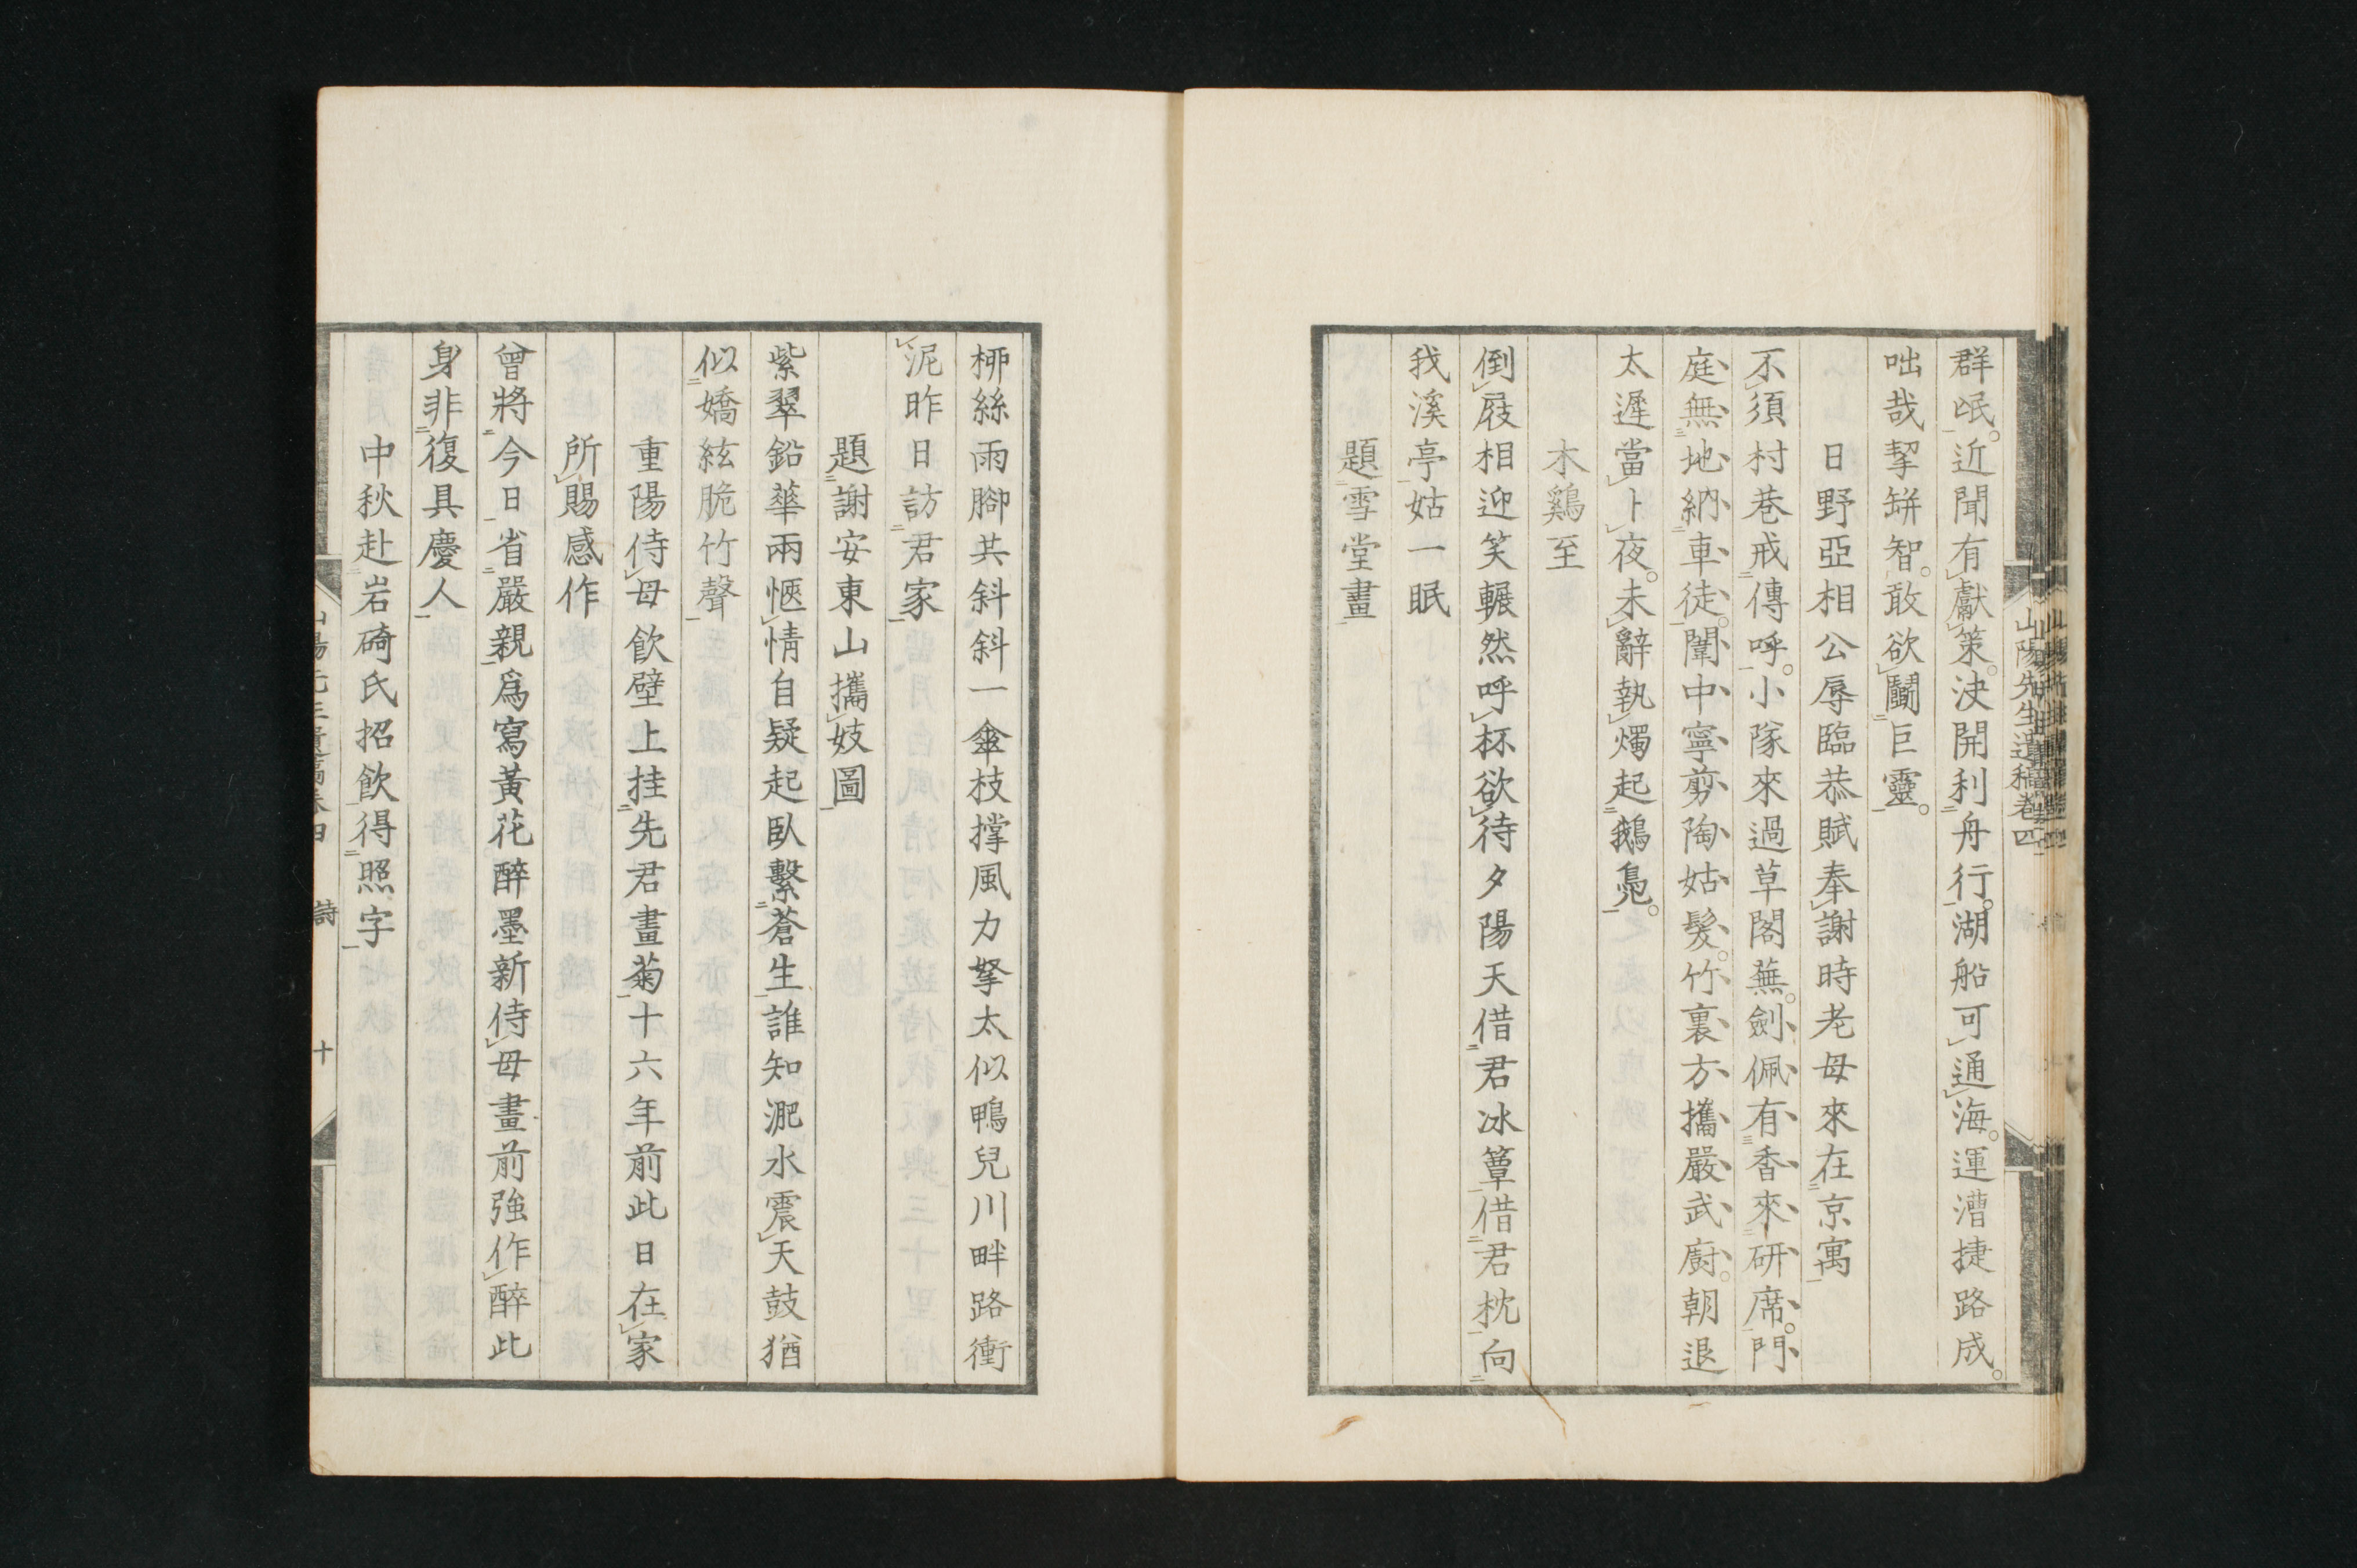 山陽先生遺稿卷四
群氓近聞有獻策決開利舟行湖船可通海運漕捷路成
咄哉挈缾智敢欲鬭巨靈
日野亞相公辱臨恭賦奉謝時老母來在京寓
不須村巷戒傳呼小隊來過草閣蕪劍佩有香來研席門
庭無地納車徒闈中寧剪陶姑髮竹裏方攜嚴武廚朝退
太遲當卜夜未辭執燭起鵝鳧
木鷄至
倒屐相迎笑輾然呼杯欲待夕陽天借君冰簟借君枕向
我溪亭姑一眠
題雪堂畫
桺絲雨腳共斜斜一傘枝撐風力拏太似鴨兒川畔路衝
泥昨日訪君家
題謝安東山攜妓圖
紫翠鉛華兩愜情自疑起臥繫蒼生誰知淝水震天鼓猶
似嬌絃脆竹聲
重陽侍母飲壁上挂先君畫菊十六年前此日在家
所賜感作
曾將今日省嚴親爲寫黃花醉墨新侍母畫前強作醉此
身非復具慶人
中秋赴岩碕氏招飲得照字
詩
十